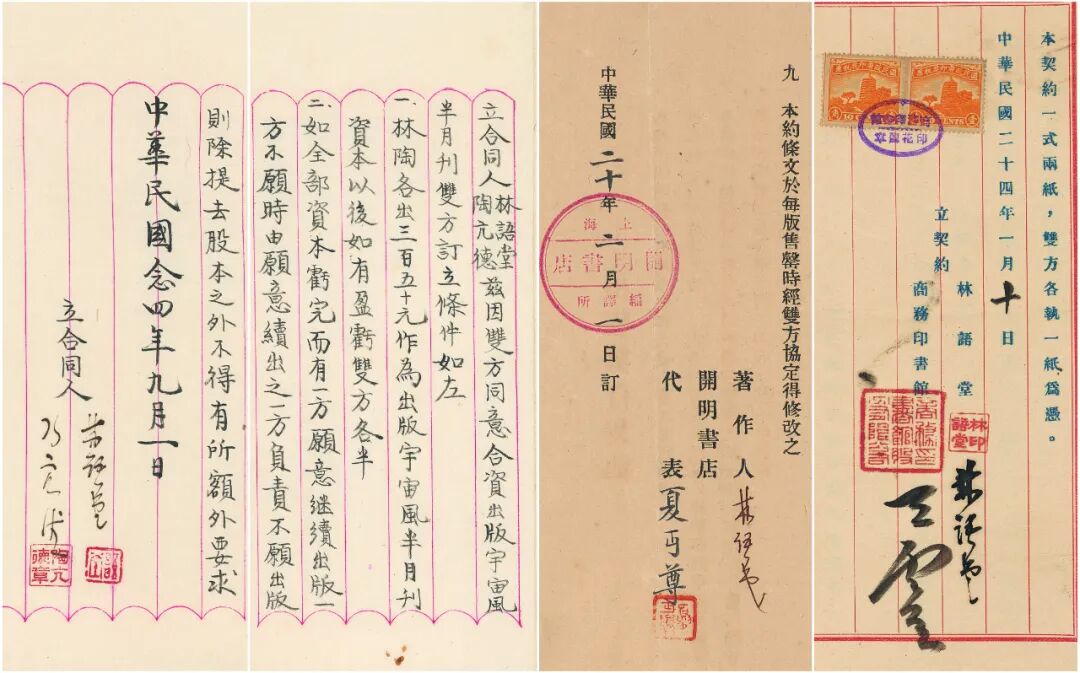 本契約一式兩紙，雙方各執一紙爲憑。
中華民國二十四年一月十日
立契約
林語堂
商務印書館
林印語堂
林語堂
王雲五
九　本約條文於每版售罄時經雙方協定得修改之
中華民國二十年二月一日訂
上海
開明書店
編譯所
著作人林語堂
開明書店
代表夏丏尊
立合同人林語堂陶亢德茲因雙方同意合資出版宇宙風
半月刊雙方訂立條件如左
一.林陶各出三百五十元作為出版宇宙風半月刊
資本以後如有盈虧雙方各半
二.如全部資本虧完而有一方願意繼續出版一
方不願時由願意續出之一方負責不願出版
則除提去股本之外不得有所額外要求
中華民國念四年九月一日
立合同人
林語堂
陶亢德
陶亢德章